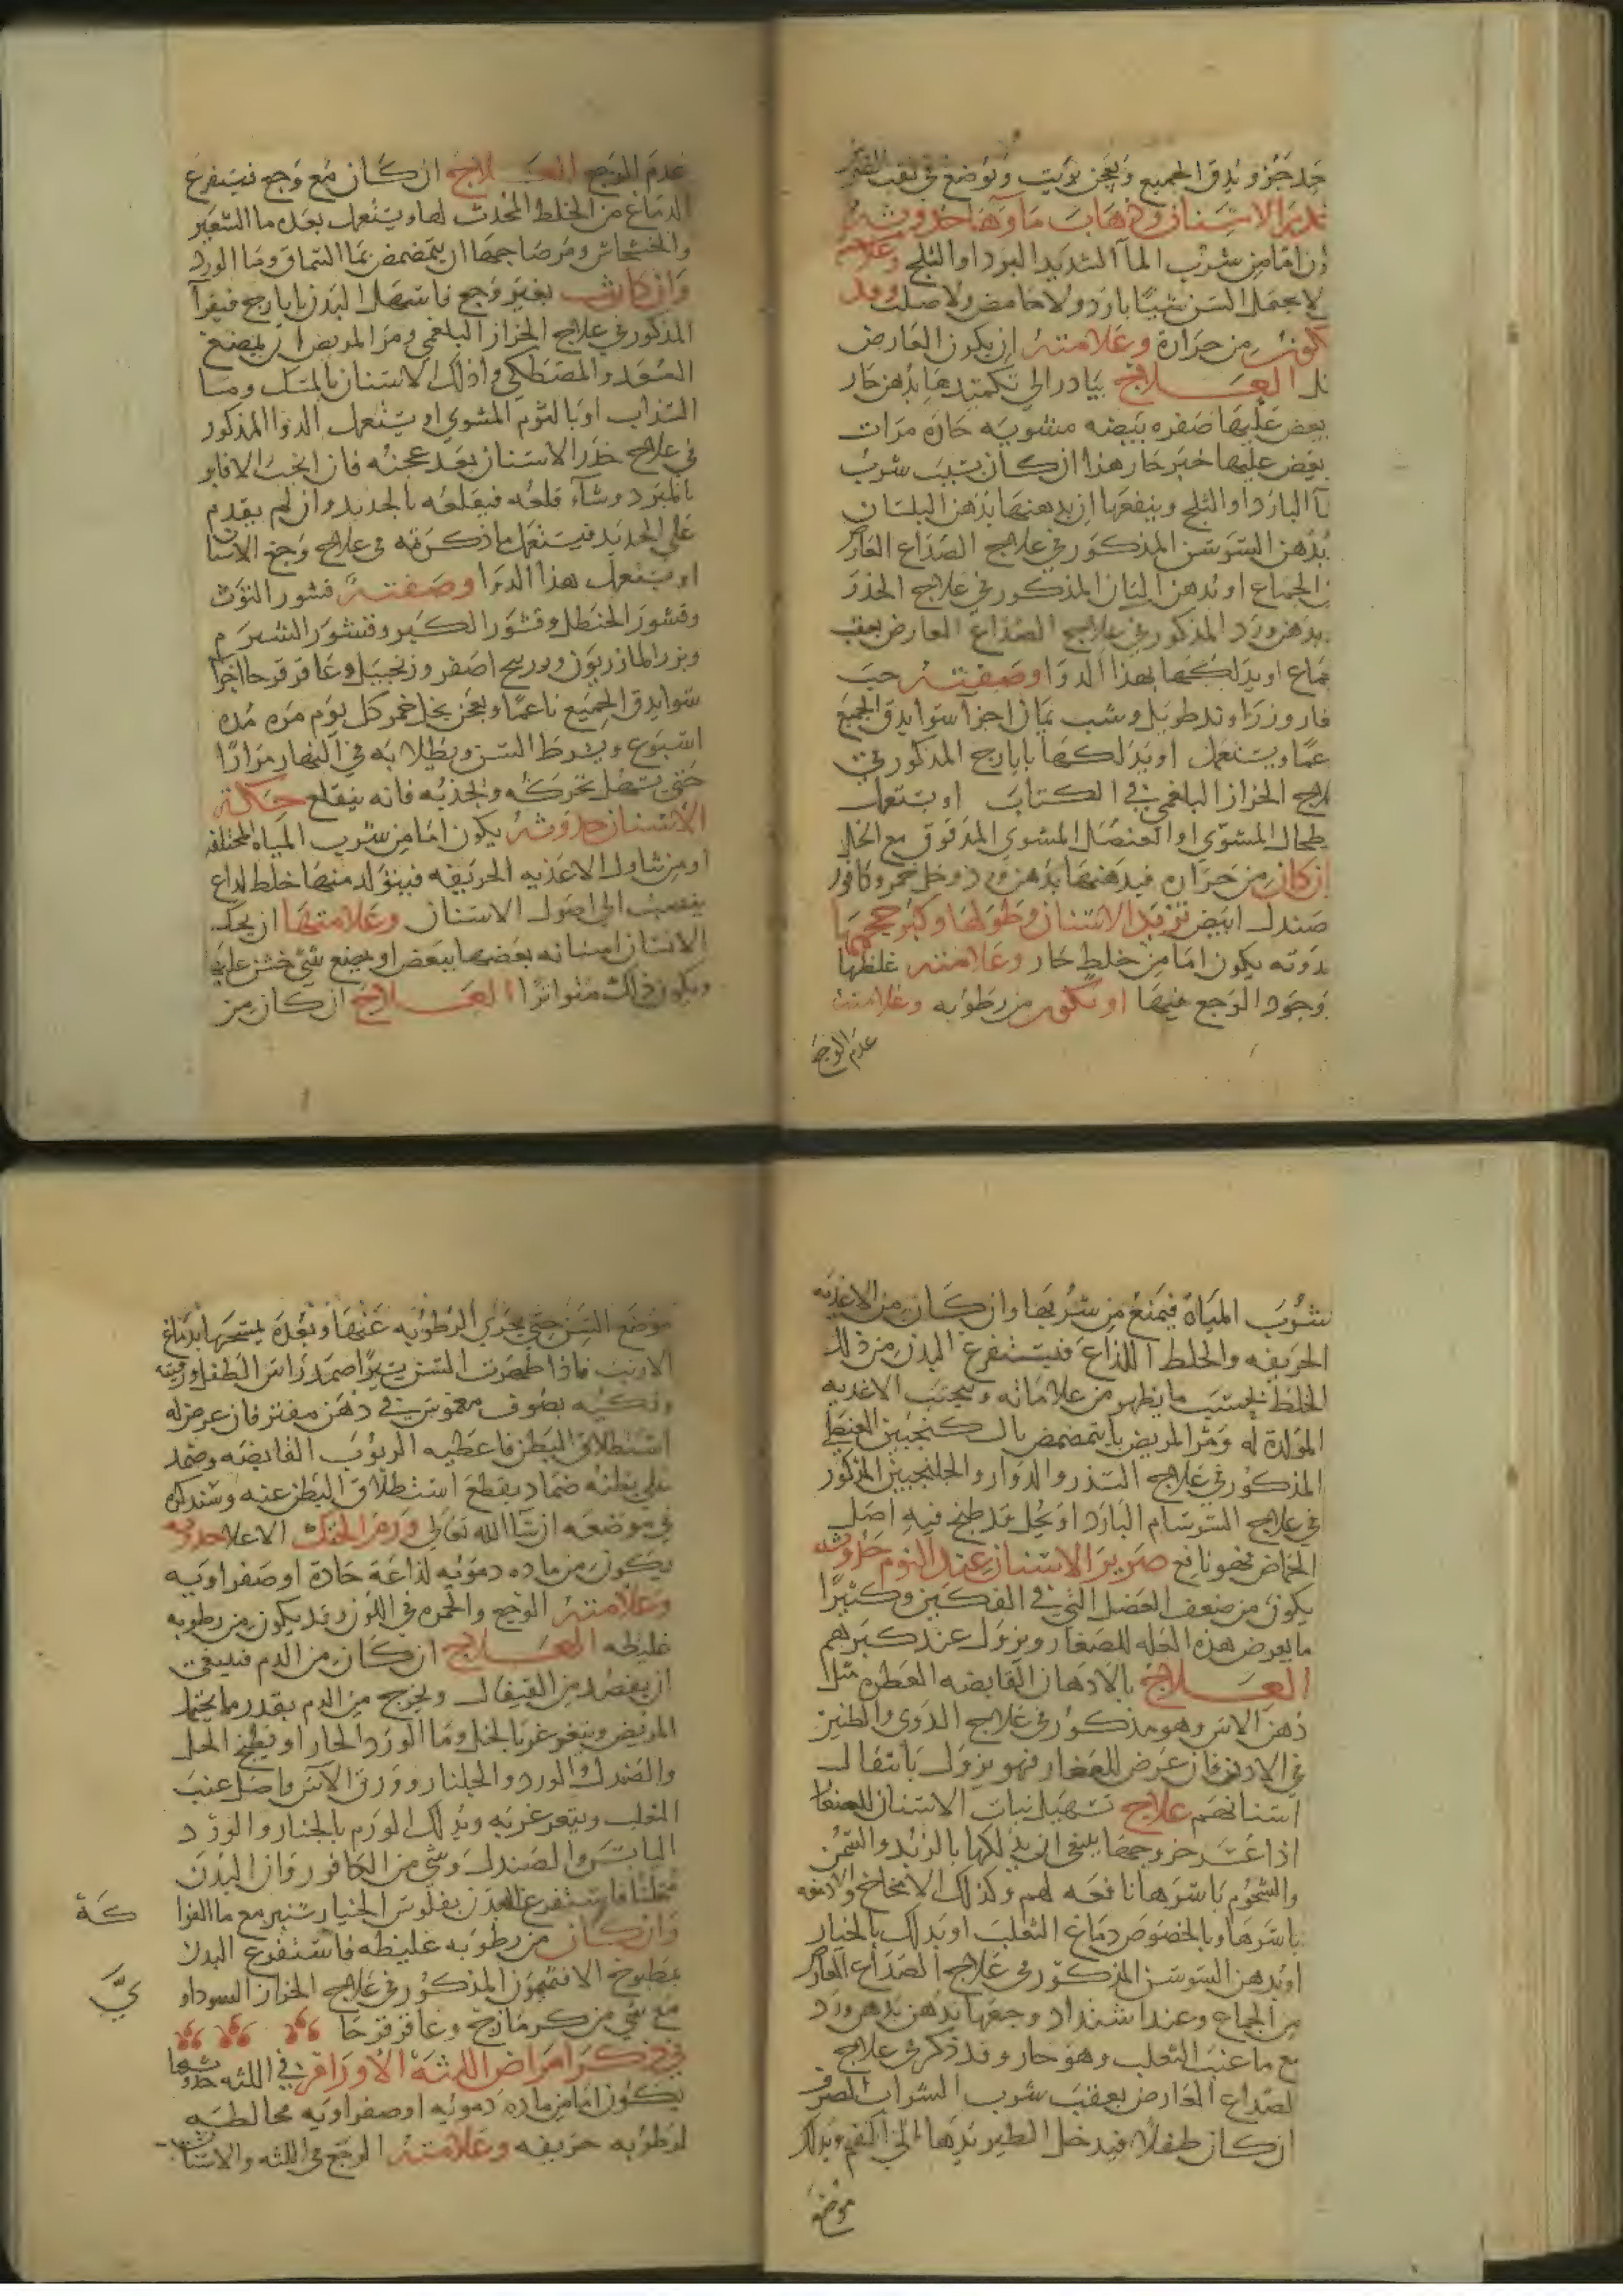 جزء جزء ويدق الجميع ويعجن بزيت ويوضع في ثقب الضرس
الاسنان وذهاب ماوها حدوثه
ن اما من شرب الما الشديد البرد او الثلج وعلامته
لا يحمل السن شيا باردا ولا حامض ولا صلب وقد
تكون من حرارة وعلامته ان يكون العارض
العلاج يبادر الي تكميدها بدهن حار
يعض عليها صفره بيضه مشويه حاره مرات
يعض عليها خبز حار هذا ان كان بسبب شرب
ما البارد او الثلج وينفعها ان يدهنها بدهن البلسان
بدهن السوسن المذكور في علاج الصداع العارض
الجماع او بدهن البان المذكور في علاج الخدر
بدهن ورد المذكور في علاج الصداع العارض بعقب
جماع او يدلكها بهذا الدوا وصفته حب
غار وزراوند طويل وشب يمان اجزا سوا يدق الجميع
عما ويستعمل او يدلكها بايارج المذكور في
لاج الخزاز البلغمي في الكتاب او يستعمل
طحال المشوي او العنصل المشوي المدقوق مع الخل
ان كان من حراره فيدهنها بدهن ورد وخل خمر وكافور
صندل ابيض تزيد الاسنان وطولها وكبر حجمها
دوثه يكون اما من خلط حار وعلامته غلظها
وجود الوجع فيها او تكون من رطوبه وعلامته
عدم الوجع
عدم الوجع العلاج ان كان مع وجع فيستفرغ
الدماغ من الخلط المحدث لها ويستعمل بعده ما الشعير
والخشخاش ومر صاحبها ان يتمضمض بما السماق وما الورد
وان كانت بغير وجع فاسهل البدن بايارج فيقرا
المذكور في علاج الخزاز البلغمي ومر المريض ان يمضغ
السعد والمصطكي وادلك الاسنان بالمسك وما
السذاب او بالثوم المشوي او يستعمل الدوا المذكور
في علاج خدر الاسنان بعد عجنه فان انجب الا فابر
بالمبرد وشاء قلعه فيقلعه بالحديد وان لم يقدم
علي الحديد فيستعمل ما ذكرته في علاج وجع الاسنان
او يستعمل هذا الدوا وصفته قشور التوت
وقشور الحنظل وقشور الكبر وقشور الشبرم
وبزر المازريون وزرنيخ اصفر وزنجبيل وعاقر قرحا اجزا
سوا يدق الجميع ناعما ويعجن بخل خمر كل يوم مره مده
اسبوع ويشرط السن ويطلا به في النهار مرارا
حتي يسهل تحركه وجذبه فانه ينقلع حكة
الاسنان حدوثه يكون اما من شرب المياه المختلفه
او من تناول الاغذيه الحريفه فيتولد منها خلط لداع
ينصب الي اصول الاسنان وعلامتها ان يحك
الانسان اسنانه بعضها ببعض او يمضغ شي خشن عليها
ويكون ذلك متواترا العلاج ان كان من
شرب المياه فيمنع من شربها وان كان من الاغذيه
الحريفه والخلط اللذاع فيستفرغ البدن من ذلك
الخلط بحسب ما يظهر من علاماته ويجتنب الاغذيه
المولدة له ومر المريض بان يتمضمض بالسكنجبين العنصلي
المذكور في علاج السدر والدوار والجلنجبين المذكور
في علاج السرسام البارد او بخل قد طبخ فيه اصل
الحماض فهو نافع صرير الاسنان عند النوم حدوثه
يكون من ضعف العضل التي في الفكين وكثيرا
ما يعرض هذه العله للصغار ويزول عند كبرهم
العلاج بالادهان القابضه العطره مثل
دهن الاس وهو مذكور في علاج الدوي والطنين
في الاذن فان عرض للصغار فهو يزول بانتقال
اسنانهم علاج تسهيل نبات الاسنان للصغار
اذا عسر خروجها ينبغي ان يدلكها بالزبد والسمن
والشحوم باسرها نافعه لهم وكذلك الامخاخ والادمغه
باسرها وبالخصوص دماغ الثعلب او يدلك بالخيار
او بدهن السوسن المذكور في علاج الصداع العارض
من الجماع وعند اشتداد وجعها يدهن بدهن ورد
مع ما عنب الثعلب وهو حار وقد ذكر في علاج
لصداع العارض بعقب شرب الشراب الصرف
ان كان طفلا فيدخل الطير يدها الي الفم ويدلك
موضع
موضع السن حتي يجري الرطوبه عنها وبعده يمسحها بدماغ
الارنب فاذا ظهرت السن يسيرا ضمد راس الطفل ورقبته
وفكيه بصوف مغموس في دهن مفتر فان عرض له
استطلاق البطن فاعطيه الربوب القابضه وضمد
علي بطنه ضماد يقطع استطلاق البطن عنه وسنذكره
في موضعه ان شا الله تعالي ورم الحنك الاعلا حدوثه
يكون من ماده دمويه لذاعة حادة او صفراويه
وعلامته الوجع والحمره في اللون وقد يكون من رطوبه
غليظه العلاج ان كان من الدم فينبغي
ان يفصد من القيفال ويخرج من الدم بقدر ما يحتمل
المريض ويتغرغر بالخل وما الورد الحار او يطبخ الخل
والصندل والورد والجلنار وورق الاس واصل عنب
الثعلب ويتغرغر به ويدلك الورم بالجلنار والورد
اليابس والصندل وشي من الكافور وان البدن
ممتلئا فاستفرغ البدن بفلوس الخيار شنبر مع ما الفوا
كة
وان كان من رطوبه غليظه فاستفرغ البدن
بمطبوخ الافتيمون المذكور في علاج الخزاز السوداو
يّ
مع شي من كرمازج وعاقر قرحا
في ذكر امراض اللثة الاورام في اللثه حدوثها
يكون اما من ماده دمويه او صفراويه مخالطه
لرطوبه حريفه وعلامته الوجع في اللثه والاسنان